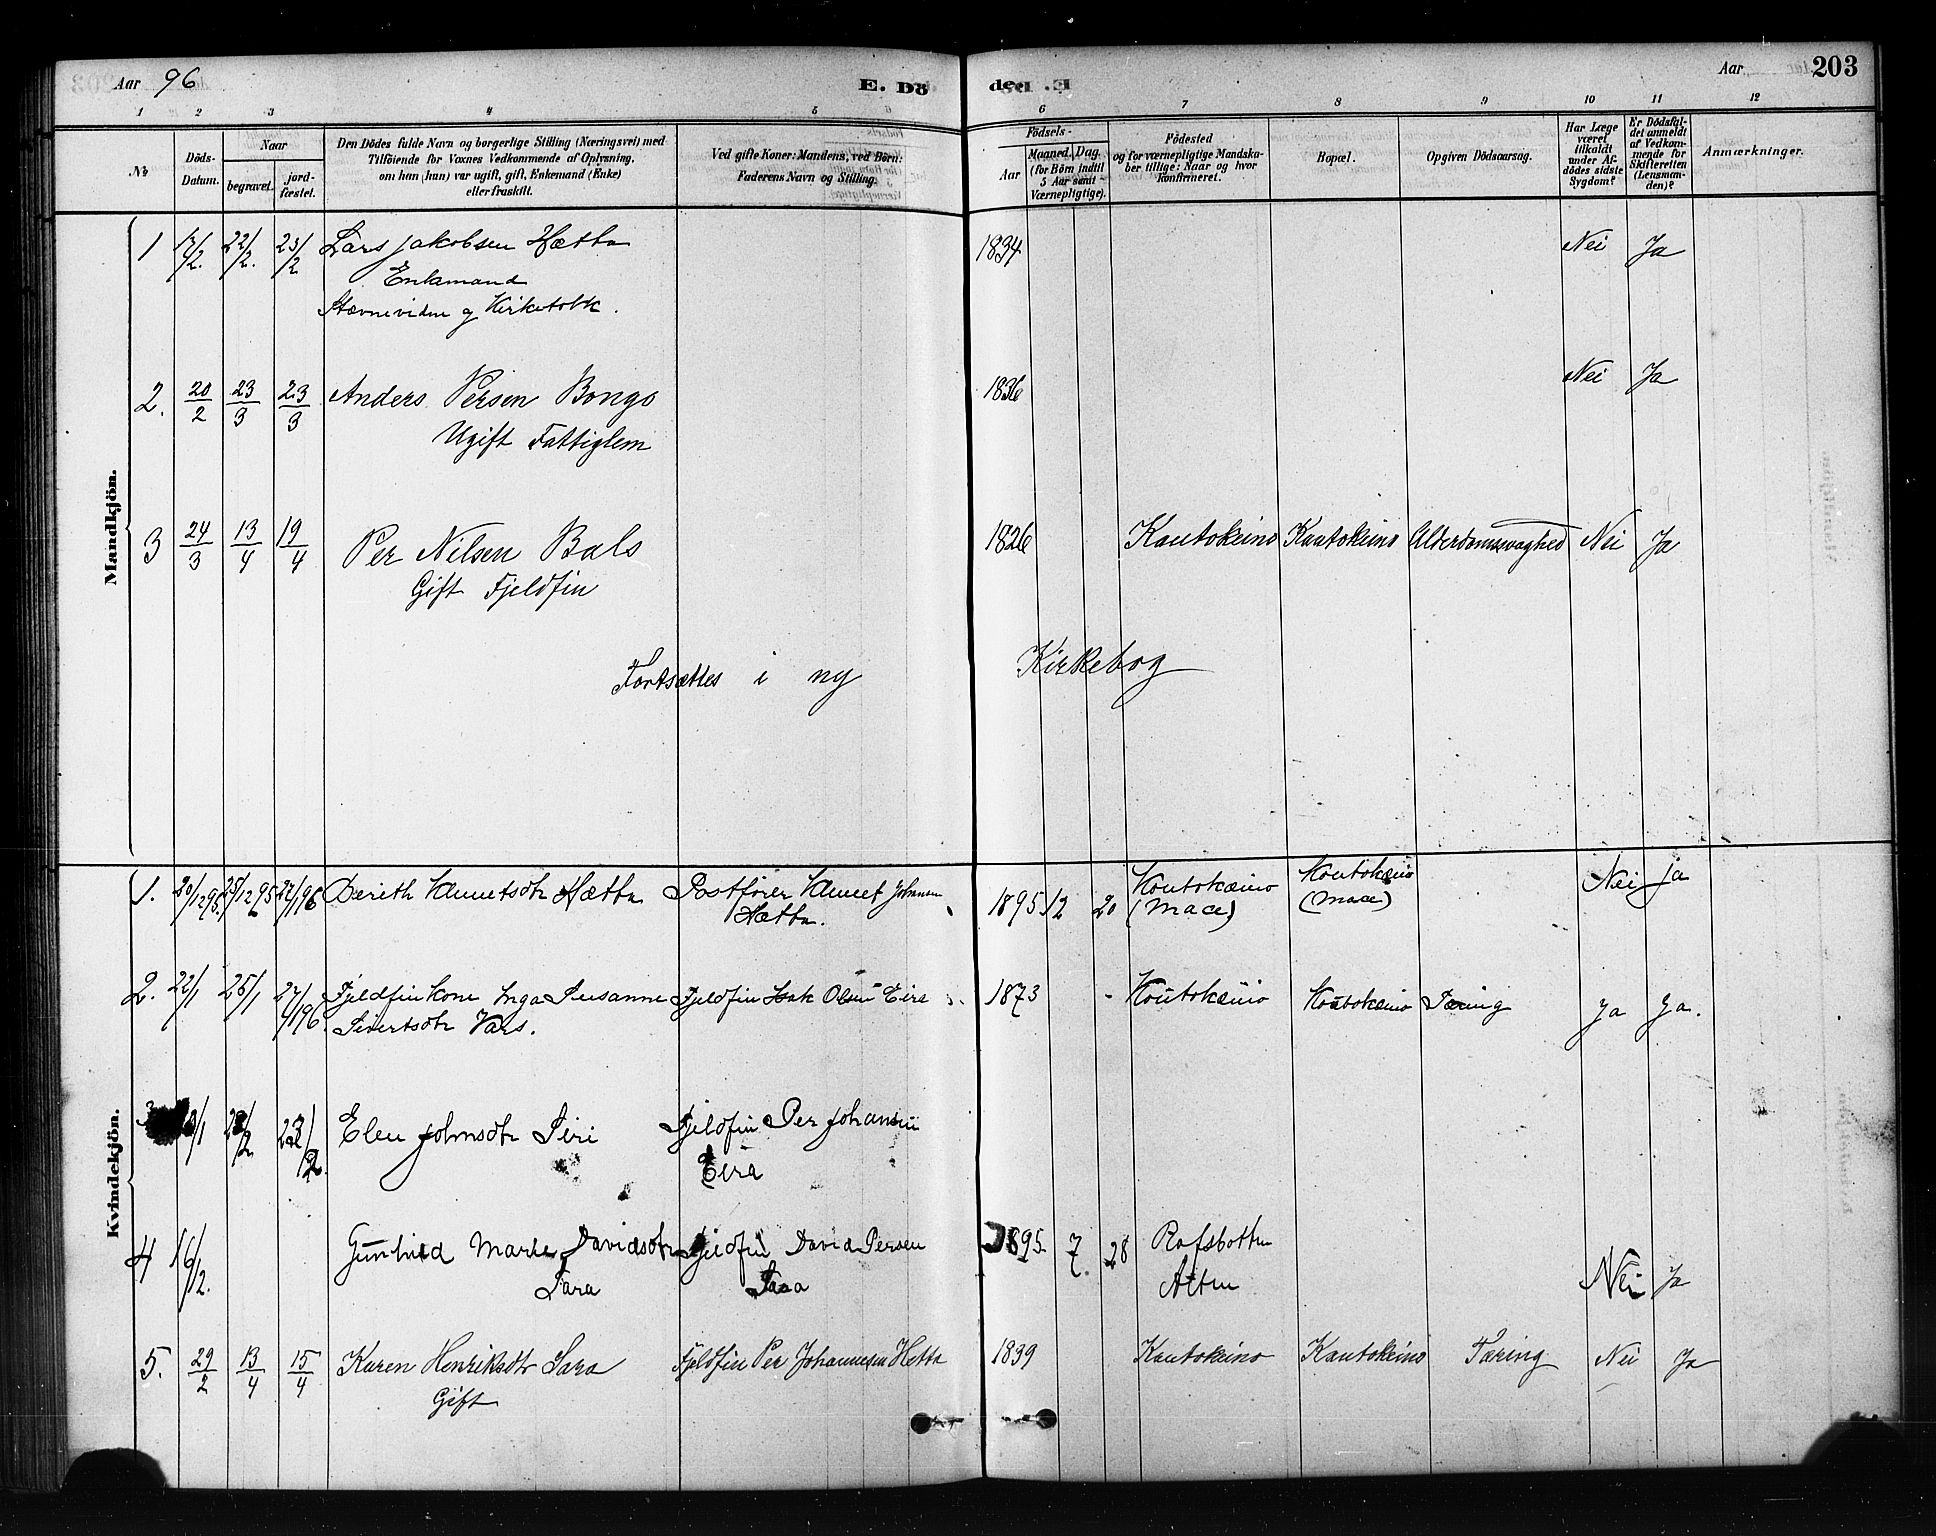 Aar 96 E. Dö
den E. Aar 203
1 2 3 4 5 6 7 8 9 10 11 12
No
Döds-Datum.
Naar
begravet.
jord-fæstet.
Den Dödes fulde Navn og borgerlige Stilling (Næringsvei) med
Tilföiende for Voxnes Vedkommende af Oplysning,
om han (hun) var ugift, gift, Enkemand (Enke)
eller fraskilt.
Ved gifte Koner: Mandens, ved Börn:
Faderens Navn og Stilling.
Födsels-
Aar
Maaned. Dag.
(for Börn indtil
5 Aar samt
Værnepligtige).
Födested
og for værnepligtige Mandska-
ber tillige: Naar og hvor
konfirmeret.
Bopæl.
Opgiven Dödsaarsag.
Har Læge
været
tilkaldt
under Af-
dödes sidste
Sygdom?
Er Dödsfal-
det anmeldt
af Vedkom-
mende for
Skifteretten
(Lensman-
den)?
Anmærkninger.
Mandkjön.
1 17/2. 22/2. 23/2 Lars Jakobsen Hætta 1834 Nei Ja
Enkemand
Stævnevidne og Kirketolk.
2. 20/2 23/3 23/3 Anders Persen Bongo 1836 Nei Ja
Ugift Fattiglem
3 24/3 13/4 19/4 Per Nilsen Bals 1826 Kautokeino Kautokeino Alderdomssvaghed Nei Ja
Gift Fjeldfin
Fortsættes i ny Kirkebog
Kvindekjön.
1. 20/12 95. 25/12 95 27/1 96 Berith Klemetsdtr Hætta Postfører Klemet Johannesen 1895 12 20 Koutokæino Koutokæino Nei Ja
Hætta. (Mace) (Mace)
2. 22/1 25/1 27/1 96. Fjeldfinkone Inga Susanne Fjeldfin Isak Olsen Eira 1873 - Koutokæino Koutokæino Tæring Ja Ja.
Sivertsdtr Vars.
3 /1 /2 23/2. Elen Johnsdtr Siri Fjeldfin Per Johansen
Eira
4 16/2. Gunhild Marie Davidsdtr Fjeldfin David Persen 1895. 7. 28 Rafsbotten
Sara Sara Alten Nei Ja
5. 29/2 13/4 15/4 Karen Henriksdtr Sara Fjeldfin Per Johannesen Hetta 1839 Kautokeino Kautokeino Tæring Nei Ja
Gift